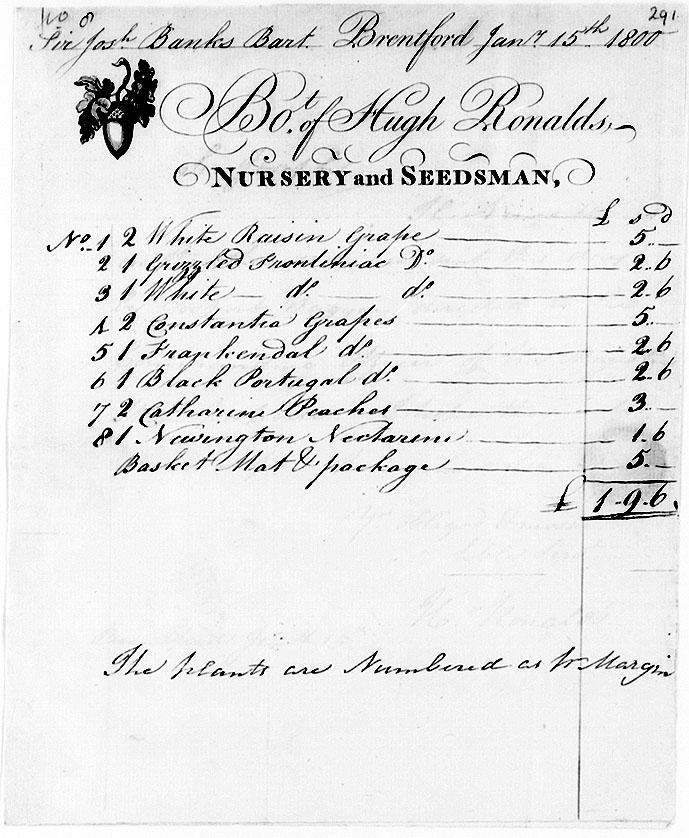 291
Sir Josh Banks Bart. Brentford Janr. 15th 1800
Bot. of Hugh Ronalds,
NURSERY and SEEDSMAN,
£ s d
No. 1 2 White Raisin Grape 5. –
2 1 Grizzled Frontiniac Do. 2. 6
3 1 White do. do. 2. 6
4 2 Constantia Grapes 5. –
5 1 Frankendal do. 2. 6
6 1 Black Portugal do. 2. 6
7 2 Catharine Peaches 3. –
8 1 Newington Nectarine 1. 6
Basket Mat & package 5. –
£ 1 - 9. 6.
The plants are Numbered as pr Margin